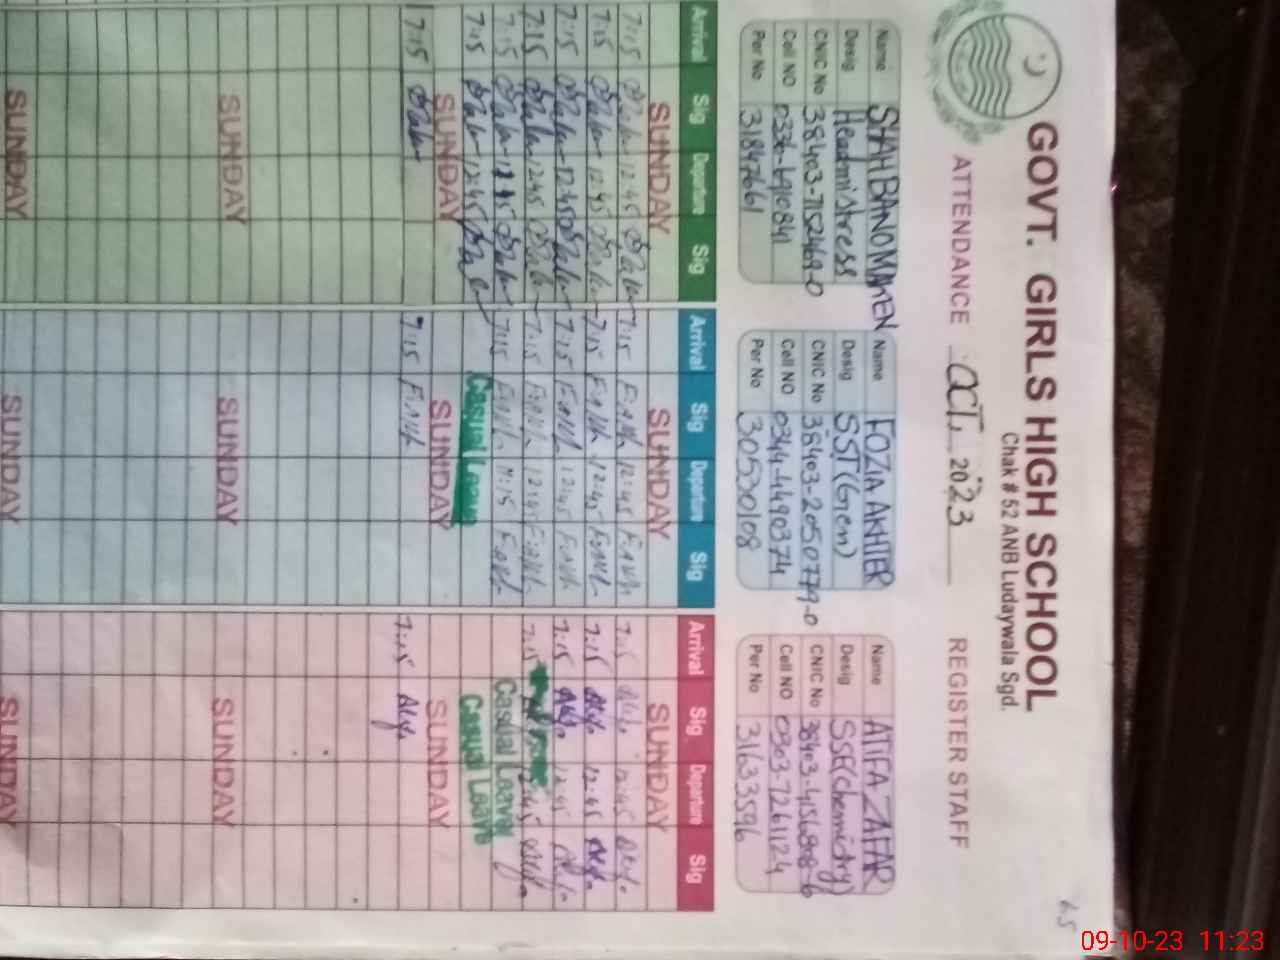 GOVT. GIRLS HIGH SCHOOL
Chak # 52 ANB Ludaywala Sgd.
ATTENDANCE OCT, 2023 REGISTER STAFF
Name SHAHBANO MAHEEN
Desig Headmistress
CNIC No 38403-7152469-0
Cell NO 0336-6910841
Per No 31847661
Name FOZIA AKHTER
Desig SST(Gen)
CNIC No 38403-2050779-0
Cell NO 0344-4490374
Per No 30530108
Name ATIFA ZAFAR
Desig SSE(chemistry)
CNIC No 38403-4156808-6
Cell NO 0303-7261124
Per No 31633596
Arrival Sig Departure Sig Arrival Sig Departure Sig Arrival Sig Departure Sig
SUNDAY SUNDAY SUNDAY
7:15 12:45 7:15 12:45 7:15 12:45
7:15 12:45 7:15 12:45 7:15 12:45
7:15 12:45 7:15 12:45 7:15 12:45
7:15 12:45 7:15 12:45 7:15 12:45
7:15 12:45 7:15 11:15 Casual Leave
7:15 12:45 Casual Leave Casual Leave
SUNDAY SUNDAY SUNDAY
7:15 7:15 7:15
SUNDAY SUNDAY SUNDAY
SUNDAY SUNDAY SUNDAY
09-10-23 11:23